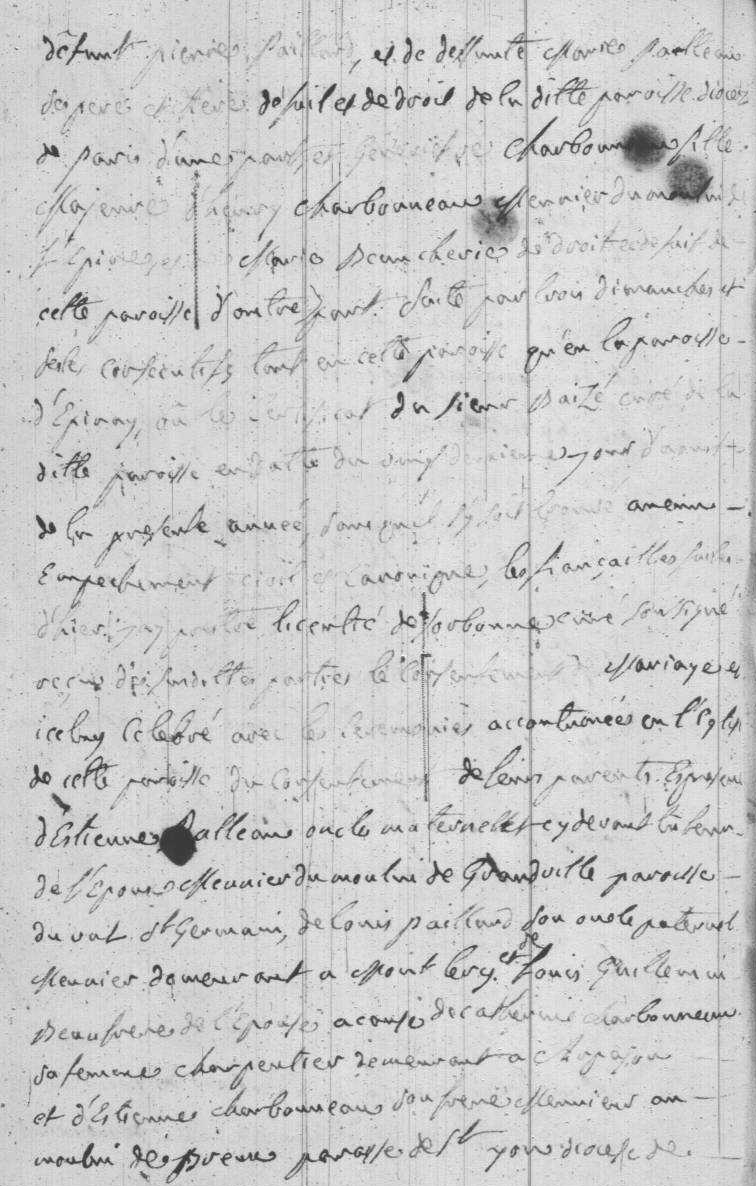 défunt pierre Paillard, et de deffunte Marie Palleau
ses pere et Mere de fait et de droit de la ditte paroisse diocese
de paris d'une part, et Geneviève Charbonneau fille
Majeure d'henry charbonneau Meunier du moulin de
Marie Beaucherie de droit et de fait de
cette paroisse d'autre part. faite par trois dimanches et
festes consecutifs tant en cette paroisse qu'en la paroisse
d'Epinay, vû le Certificat du sieur Baizé curé de la
ditte paroisse en datte du vingt jour d'aoust
de la presente année, sans qu'il s'y soit trouvé aucun
Empechement civil et Canonique, les fiançailles faites
d'hier, j'ay prêtre licentié de Sorbonne curé soussigné
reçu des susdittes parties le Consentement de Mariage et
iceluy Celebré avec les Ceremonies accoutumées en l'Eglise
de cette paroisse du Consentement de leurs parents. En presence
d'Estienne Palleau oncle maternel et cy devant tuteur
de l'Epoux Meunier du moulin de Grandville paroisse
du val St Germain, de louis paillard son oncle paternel
Meunier demeurant a Mont lery. et de Louis Guillemin
Beaufrere de l'Epouse a cause de catherine charbonneau
sa femme charpentier demeurant a Arpajon
et d'Estienne charbonneau son frere Meunier au
moulin de paroisse de St yon diocese de